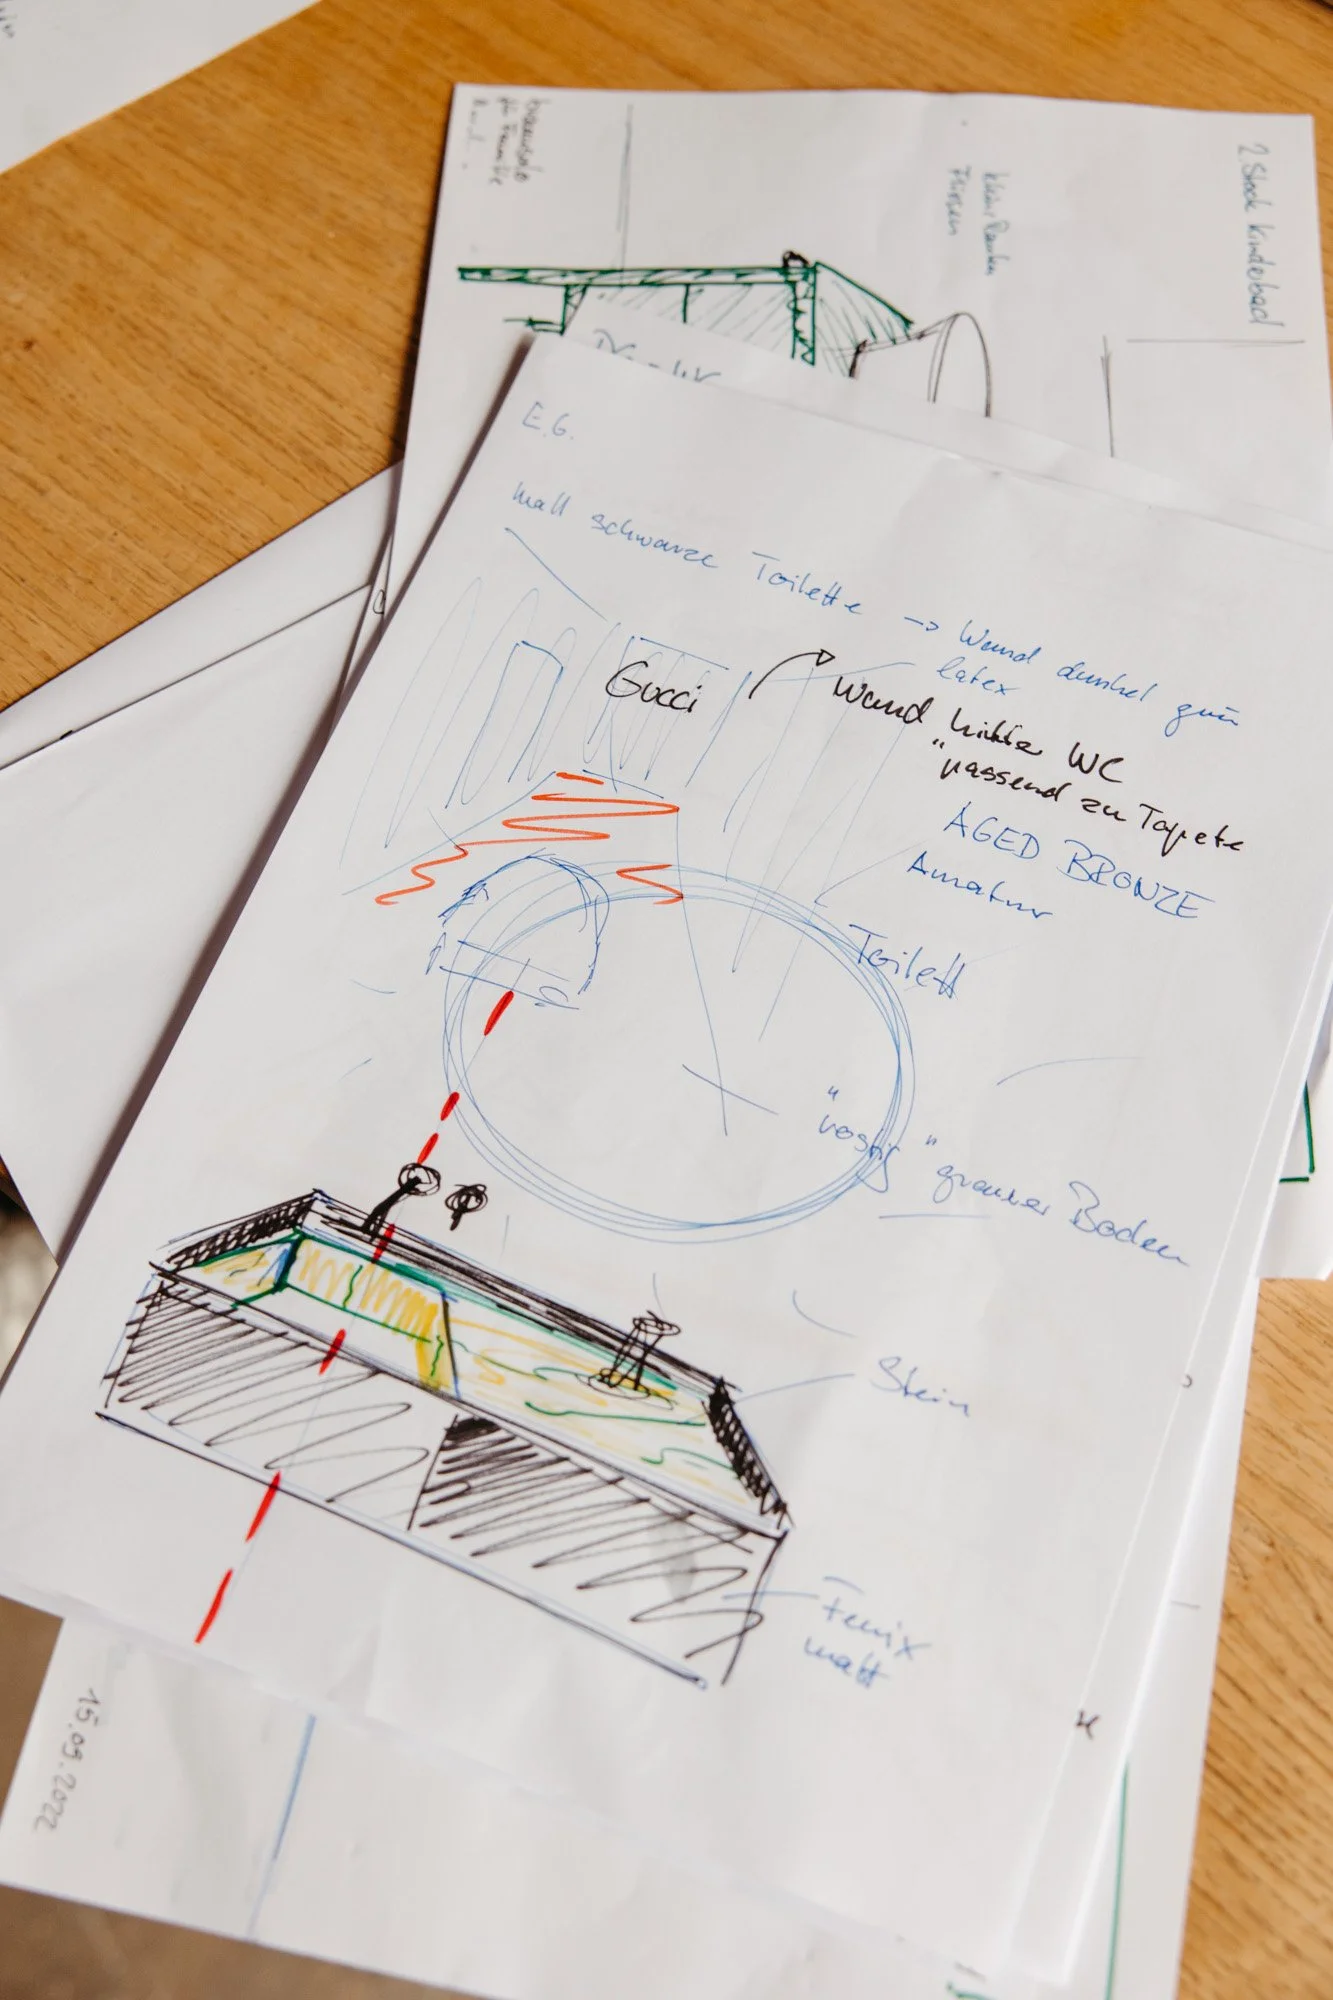 2. Stock Kinderbad
Fliesen
E.G.
matt schwarze Toilette → Wand dunkel grün
latex
Gucci
Wand hinter WC
"passend zu Tapete
AGED BRONZE
Amatur
Toilett
"rostig" grauer Boden
Stein
Fenix
matt
15.09.2022